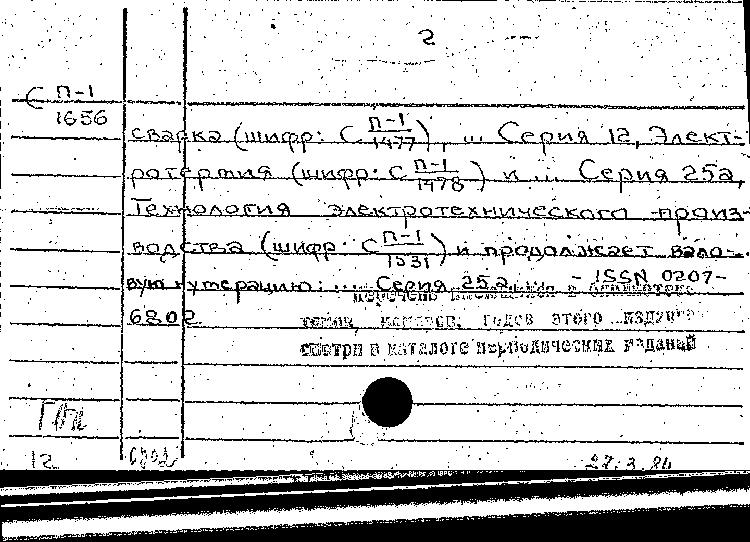 2
С П-1
1656
сварка (шифр: С П-1/1477), ... Серия 12, Элект-
ротермия (шифр: С П-1/1478) и ... Серия 25а,
Технология электротехнического произ-
водства (шифр: С П-1/1531) и продолжает вало-
вую нумерацию: ... Серия 25а. - ISSN 0207-
6802
перечень в библиотеке
томов, годов этого
смотри в каталоге периодических изданий
12
27.3.84